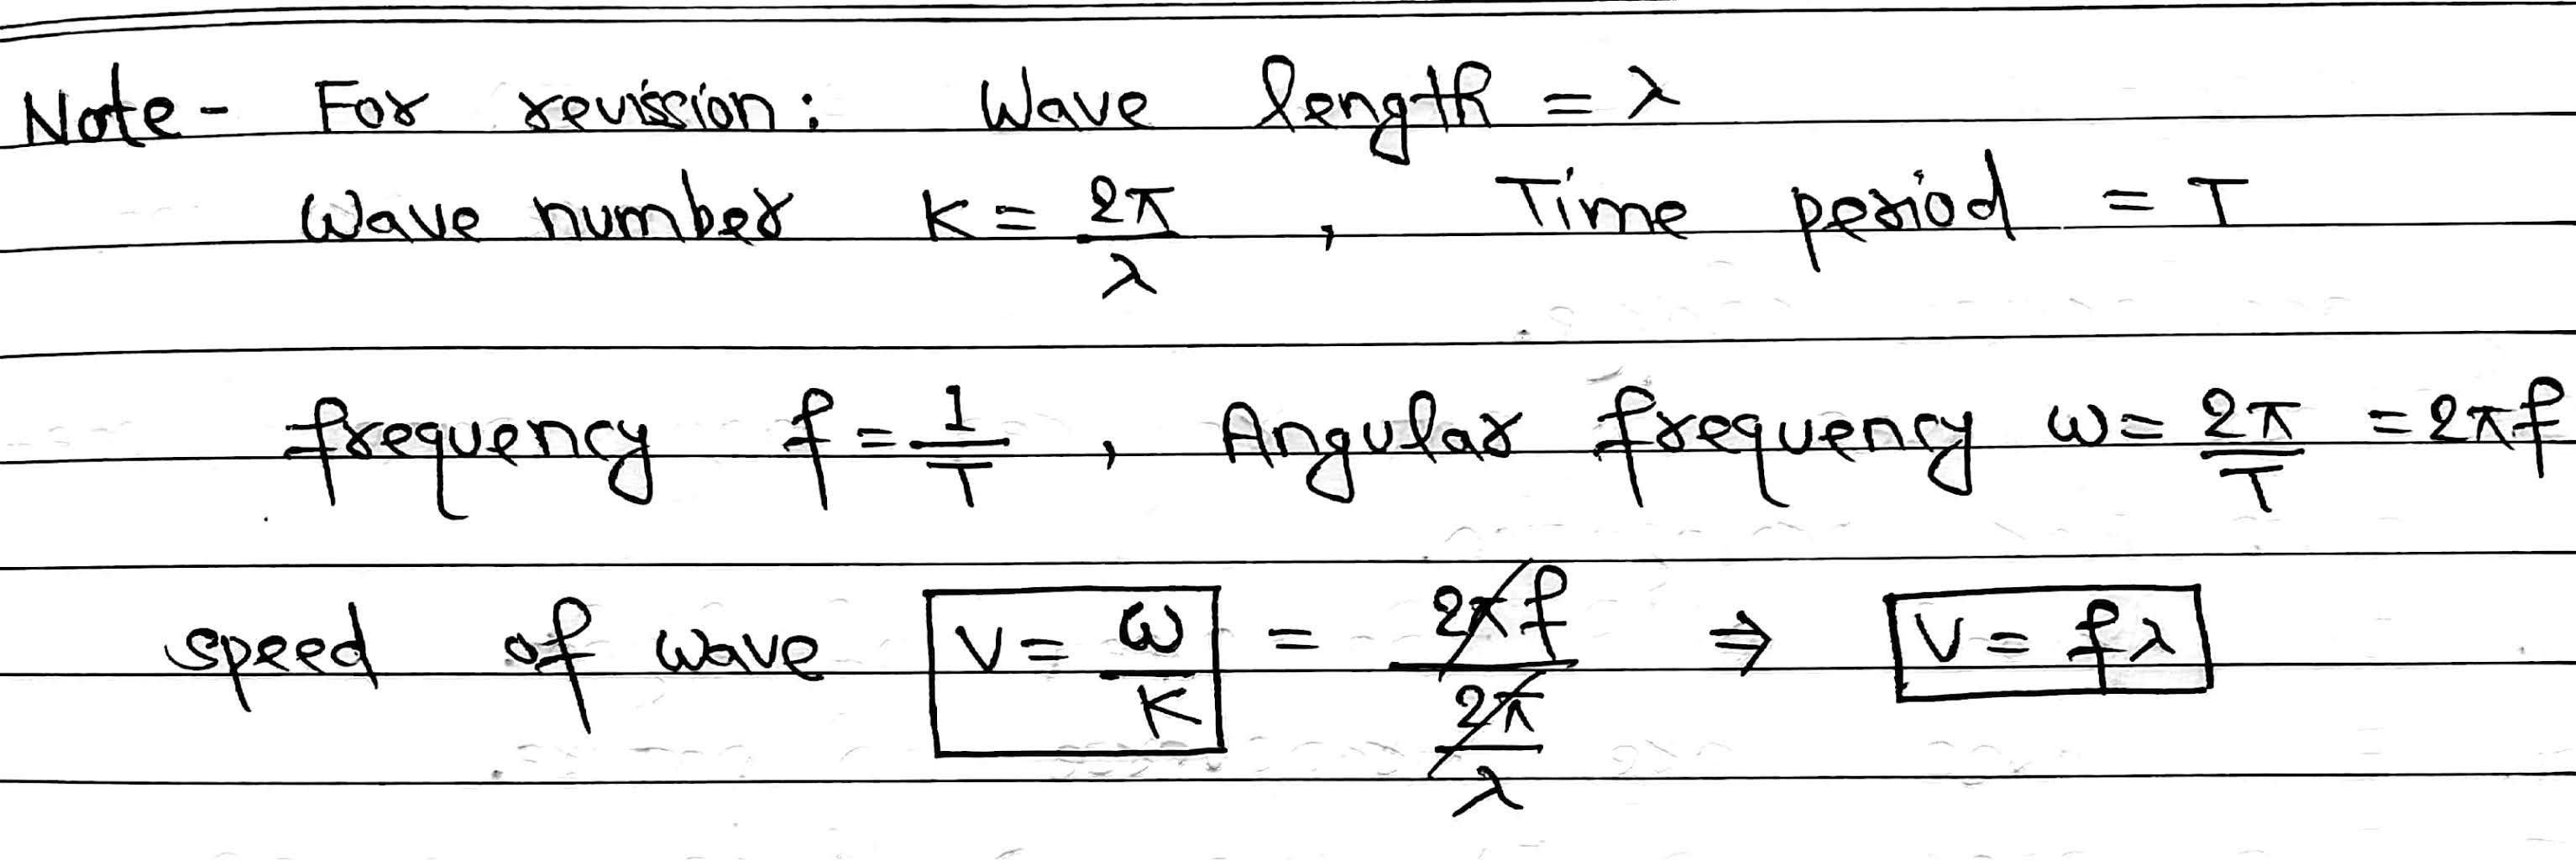 Note - For revission: Wave length = λ
Wave number K = 2π/λ , Time period = T
frequency f = 1/T , Angular frequency ω = 2π/T = 2πf
speed of wave V = ω/K = 2πf/(2π/λ) ⇒ V = fλ